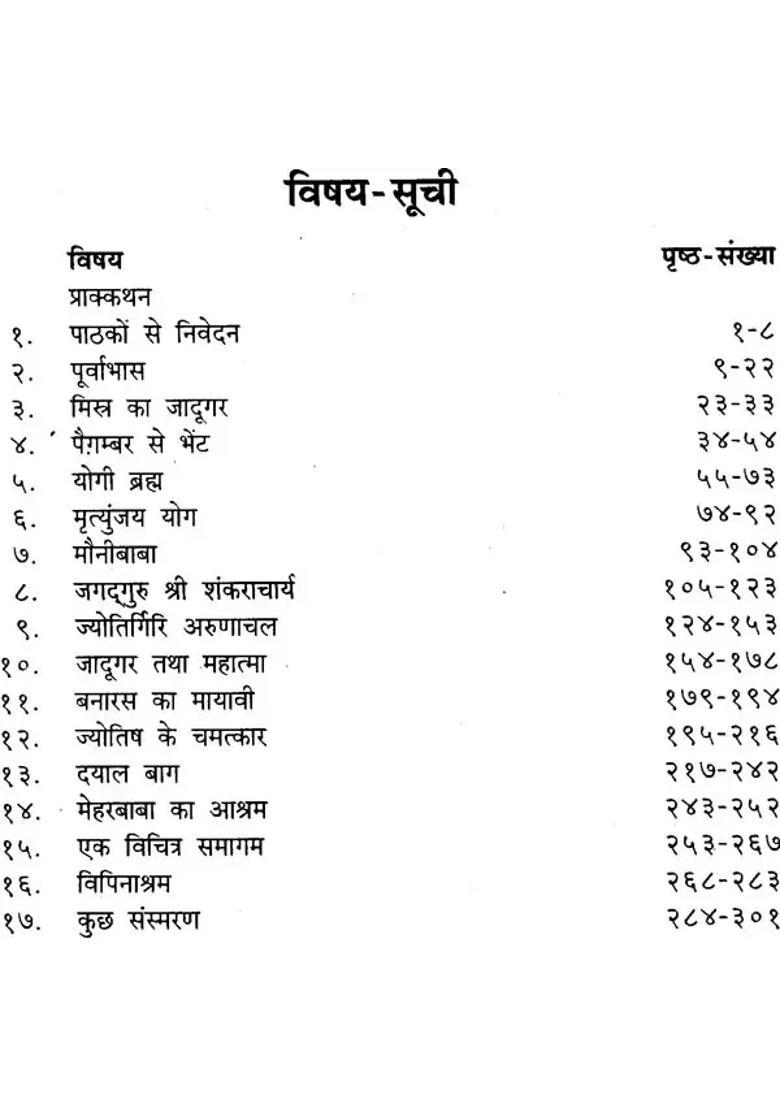 विषय-सूची
विषय पृष्ठ-संख्या
प्राक्कथन
१. पाठकों से निवेदन १-८
२. पूर्वाभास ९-२२
३. मिस्र का जादूगर २३-३३
४. पैग़म्बर से भेंट ३४-५४
५. योगी ब्रह्म ५५-७३
६. मृत्युंजय योग ७४-९२
७. मौनीबाबा ९३-१०४
८. जगद्‌गुरु श्री शंकराचार्य १०५-१२३
९. ज्योतिर्गिरि अरुणाचल १२४-१५३
१०. जादूगर तथा महात्मा १५४-१७८
११. बनारस का मायावी १७९-१९४
१२. ज्योतिष के चमत्कार १९५-२१६
१३. दयाल बाग २१७-२४२
१४. मेहरबाबा का आश्रम २४३-२५२
१५. एक विचित्र समागम २५३-२६७
१६. विपिनाश्रम २६८-२८३
१७. कुछ संस्मरण २८४-३०१